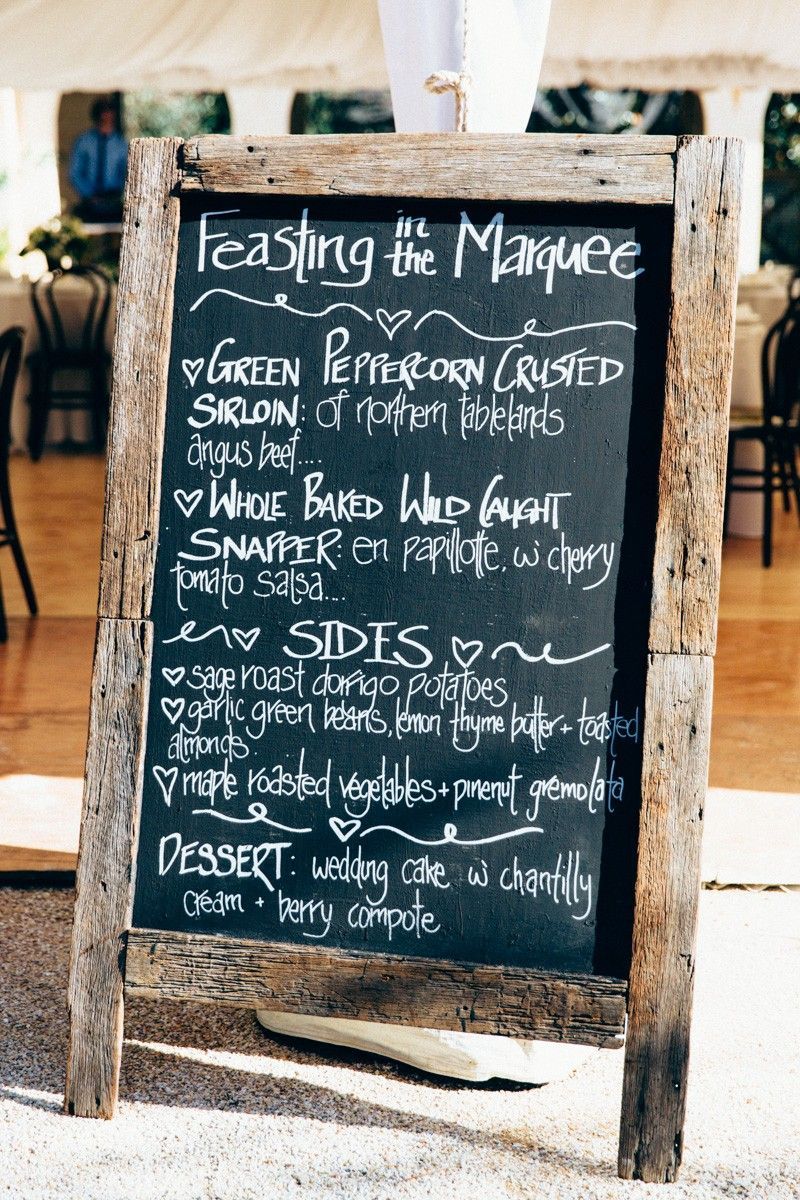 Feasting in the Marquee
GREEN PEPPERCORN CRUSTED
SIRLOIN: of northern tablelands
angus beef....
WHOLE BAKED WILD CAUGHT
SNAPPER: en papillotte, w' cherry
tomato salsa...
SIDES
sage roast dorrigo potatoes
garlic green beans, lemon thyme butter + toasted
almonds.
maple roasted vegetables + pinenut gremolata
DESSERT: wedding cake w' chantilly
cream + berry compote